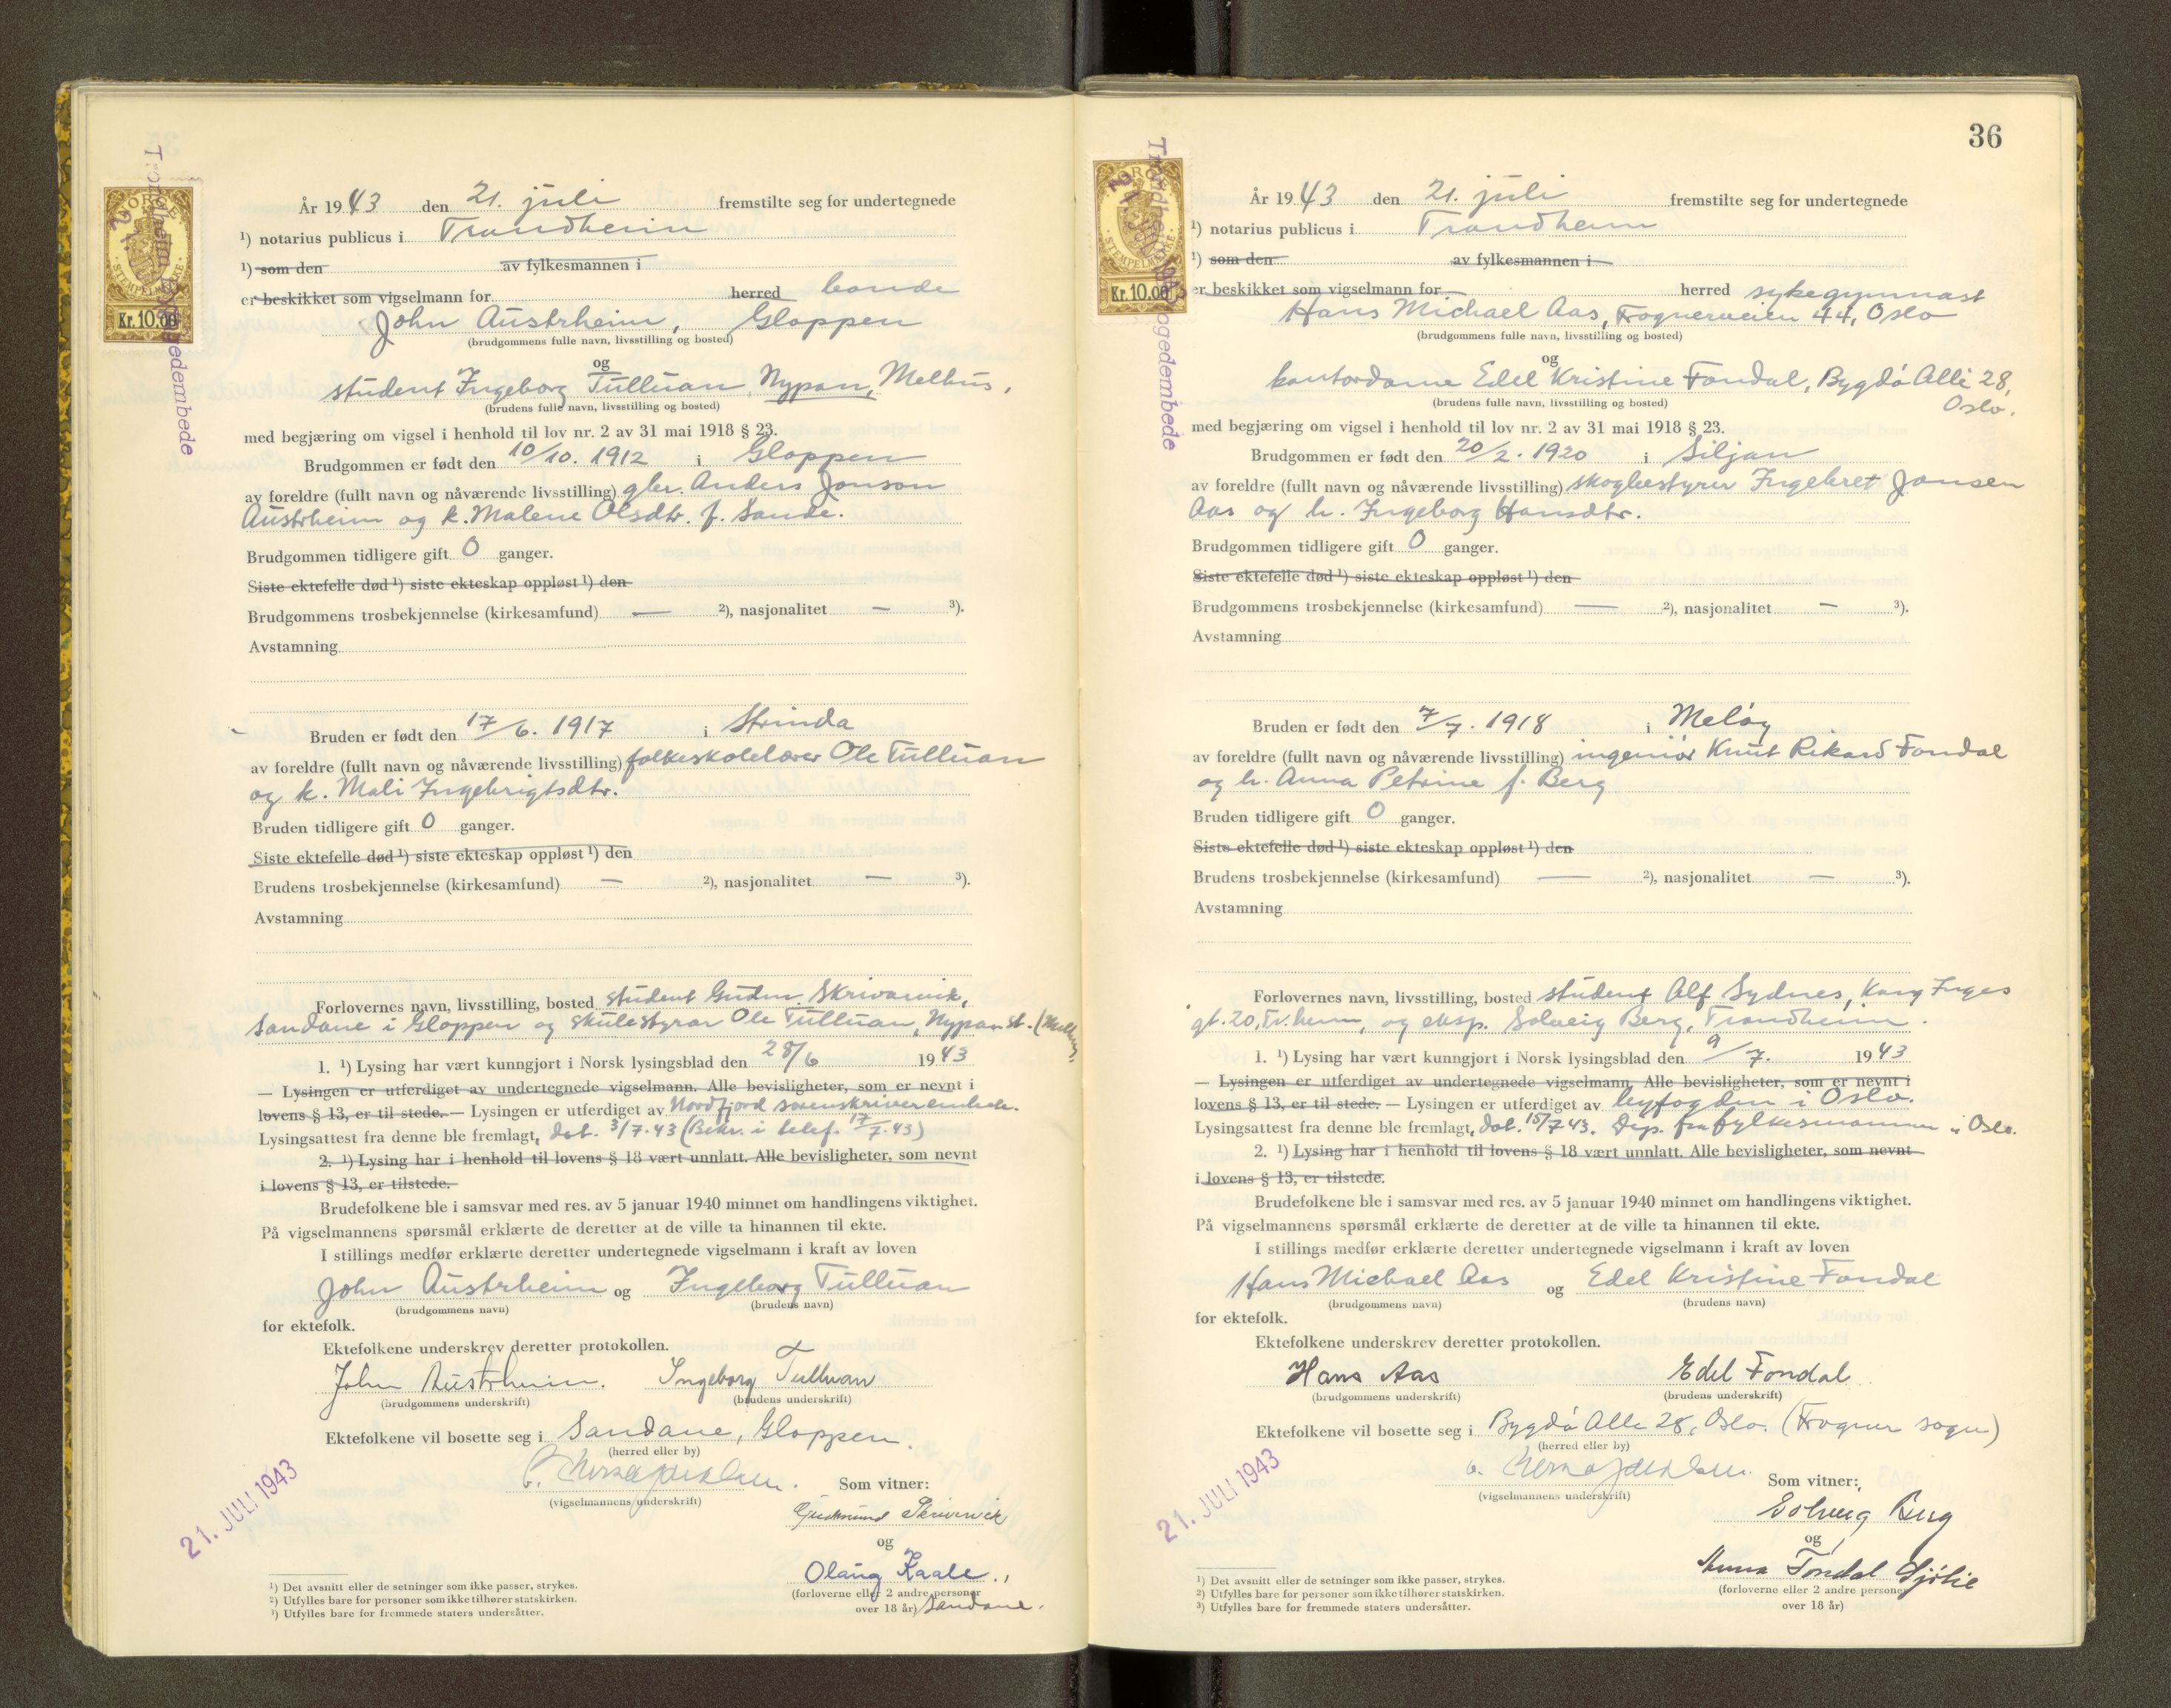 År 1943 den 21. juli fremstilte seg for undertegnede
¹) notarius publicus i Trondheim
¹) som den av fylkesmannen i
er beskikket som vigselmann for herred bonde
John Austrheim, Gloppen
(brudgommens fulle navn, livsstilling og bosted)
og
student Ingeborg Tulluan, Nypan, Melhus.
(brudens fulle navn, livsstilling og bosted)
med begjæring om vigsel i henhold til lov nr. 2 av 31 mai 1918 § 23.
Brudgommen er født den 10/10. 1912 i Gloppen
av foreldre (fullt navn og nåværende livsstilling) gbr. Anders Jonson
Austrheim og k. Malene Olsdtr. f. Sande.
Brudgommen tidligere gift 0 ganger.
Siste ektefelle død ¹) siste ekteskap oppløst ¹) den
Brudgommens trosbekjennelse (kirkesamfund) — ²), nasjonalitet — ³).
Avstamning
Bruden er født den 17/6. 1917 i Strinda
av foreldre (fullt navn og nåværende livsstilling) folkeskolelærer Ole Tulluan
og k. Mali Ingebrigtsdtr.
Bruden tidligere gift 0 ganger.
Siste ektefelle død ¹) siste ekteskap oppløst ¹) den
Brudens trosbekjennelse (kirkesamfund) — ²), nasjonalitet — ³).
Avstamning
Forlovernes navn, livsstilling, bosted student Gudm. Skrivarvik,
Sandane i Gloppen og skulestyrar Ole Tulluan, Nypan st. (Melhus)
1. ¹) Lysing har vært kunngjort i Norsk lysingsblad den 28/6 1943
— Lysingen er utferdiget av undertegnede vigselmann. Alle bevisligheter, som er nevnt i
lovens § 13, er til stede. — Lysingen er utferdiget av Nordfjord sorenskriverembede.
Lysingsattest fra denne ble fremlagt, dat. 3/7.43 (Bekr. i telef. 17/7.43)
2. ¹) Lysing har i henhold til lovens § 18 vært unnlatt. Alle bevisligheter, som nevnt
i lovens § 13, er tilstede.
Brudefolkene ble i samsvar med res. av 5 januar 1940 minnet om handlingens viktighet.
På vigselmannens spørsmål erklærte de deretter at de ville ta hinannen til ekte.
I stillings medfør erklærte deretter undertegnede vigselmann i kraft av loven
John Austrheim og Ingeborg Tulluan
(brudgommens navn) (brudens navn)
for ektefolk.
Ektefolkene underskrev deretter protokollen.
John Austrheim. Ingeborg Tulluan
(brudgommens underskrift) (brudens underskrift)
Ektefolkene vil bosette seg i Sandane, Gloppen.
(herred eller by)
Som vitner:
(vigselmannens underskrift)
Gudmund Skrivarvik
og
Olaug Kaale.,
(forloverne eller 2 andre personer
over 18 år) Sandane.
21. JULI 1943
¹) Det avsnitt eller de setninger som ikke passer, strykes.
²) Utfylles bare for personer som ikke tilhører statskirken.
³) Utfylles bare for fremmede staters undersåtter.
NORGE
STEMPELMERKE
Kr. 10.00
Trondheim byfogedembede
36
År 1943 den 21. juli fremstilte seg for undertegnede
¹) notarius publicus i Trondheim
¹) som den av fylkesmannen i
er beskikket som vigselmann for herred sykegymnast
Hans Michael Aas, Frognerveien 44, Oslo
(brudgommens fulle navn, livsstilling og bosted)
og
kontordame Edel Kristine Fondal, Bygdö Allé 28,
Oslo.
(brudens fulle navn, livsstilling og bosted)
med begjæring om vigsel i henhold til lov nr. 2 av 31 mai 1918 § 23.
Brudgommen er født den 20/2. 1920 i Siljan
av foreldre (fullt navn og nåværende livsstilling) skogbestyrer Ingebret Jansen
Aas og h. Ingeborg Hansdtr.
Brudgommen tidligere gift 0 ganger.
Siste ektefelle død ¹) siste ekteskap oppløst ¹) den
Brudgommens trosbekjennelse (kirkesamfund) — ²), nasjonalitet — ³).
Avstamning
Bruden er født den 7/7. 1918 i Melöy
av foreldre (fullt navn og nåværende livsstilling) ingeniör Knut Rikard Fondal
og h. Anna Petrine f. Berg
Bruden tidligere gift 0 ganger.
Siste ektefelle død ¹) siste ekteskap oppløst ¹) den
Brudens trosbekjennelse (kirkesamfund) — ²), nasjonalitet — ³).
Avstamning
Forlovernes navn, livsstilling, bosted student Alf Sydnes, Kong Inges
gt. 20, Tr.heim, og eksp. Solveig Berg, Trondheim.
1. ¹) Lysing har vært kunngjort i Norsk lysingsblad den 9/7. 1943
— Lysingen er utferdiget av undertegnede vigselmann. Alle bevisligheter, som er nevnt i
lovens § 13, er til stede. — Lysingen er utferdiget av byfogden i Oslo.
Lysingsattest fra denne ble fremlagt, dat. 15/7 43. Disp. fra fylkesmannen i Oslo.
2. ¹) Lysing har i henhold til lovens § 18 vært unnlatt. Alle bevisligheter, som nevnt
i lovens § 13, er tilstede.
Brudefolkene ble i samsvar med res. av 5 januar 1940 minnet om handlingens viktighet.
På vigselmannens spørsmål erklærte de deretter at de ville ta hinannen til ekte.
I stillings medfør erklærte deretter undertegnede vigselmann i kraft av loven
Hans Michael Aas og Edel Kristine Fondal
(brudgommens navn) (brudens navn)
for ektefolk.
Ektefolkene underskrev deretter protokollen.
Hans Aas Edel Fondal
(brudgommens underskrift) (brudens underskrift)
Ektefolkene vil bosette seg i Bygdö Alle 28, Oslo. (Frogner sogn)
(herred eller by)
Som vitner:
(vigselmannens underskrift)
Solveig Berg
og
Anna Fondal Gjölie
(forloverne eller 2 andre personer
over 18 år)
21. JULI 1943
¹) Det avsnitt eller de setninger som ikke passer, strykes.
²) Utfylles bare for personer som ikke tilhører statskirken.
³) Utfylles bare for fremmede staters undersåtter.
NORGE
STEMPELMERKE
Kr. 10.00
Trondheim byfogedembede